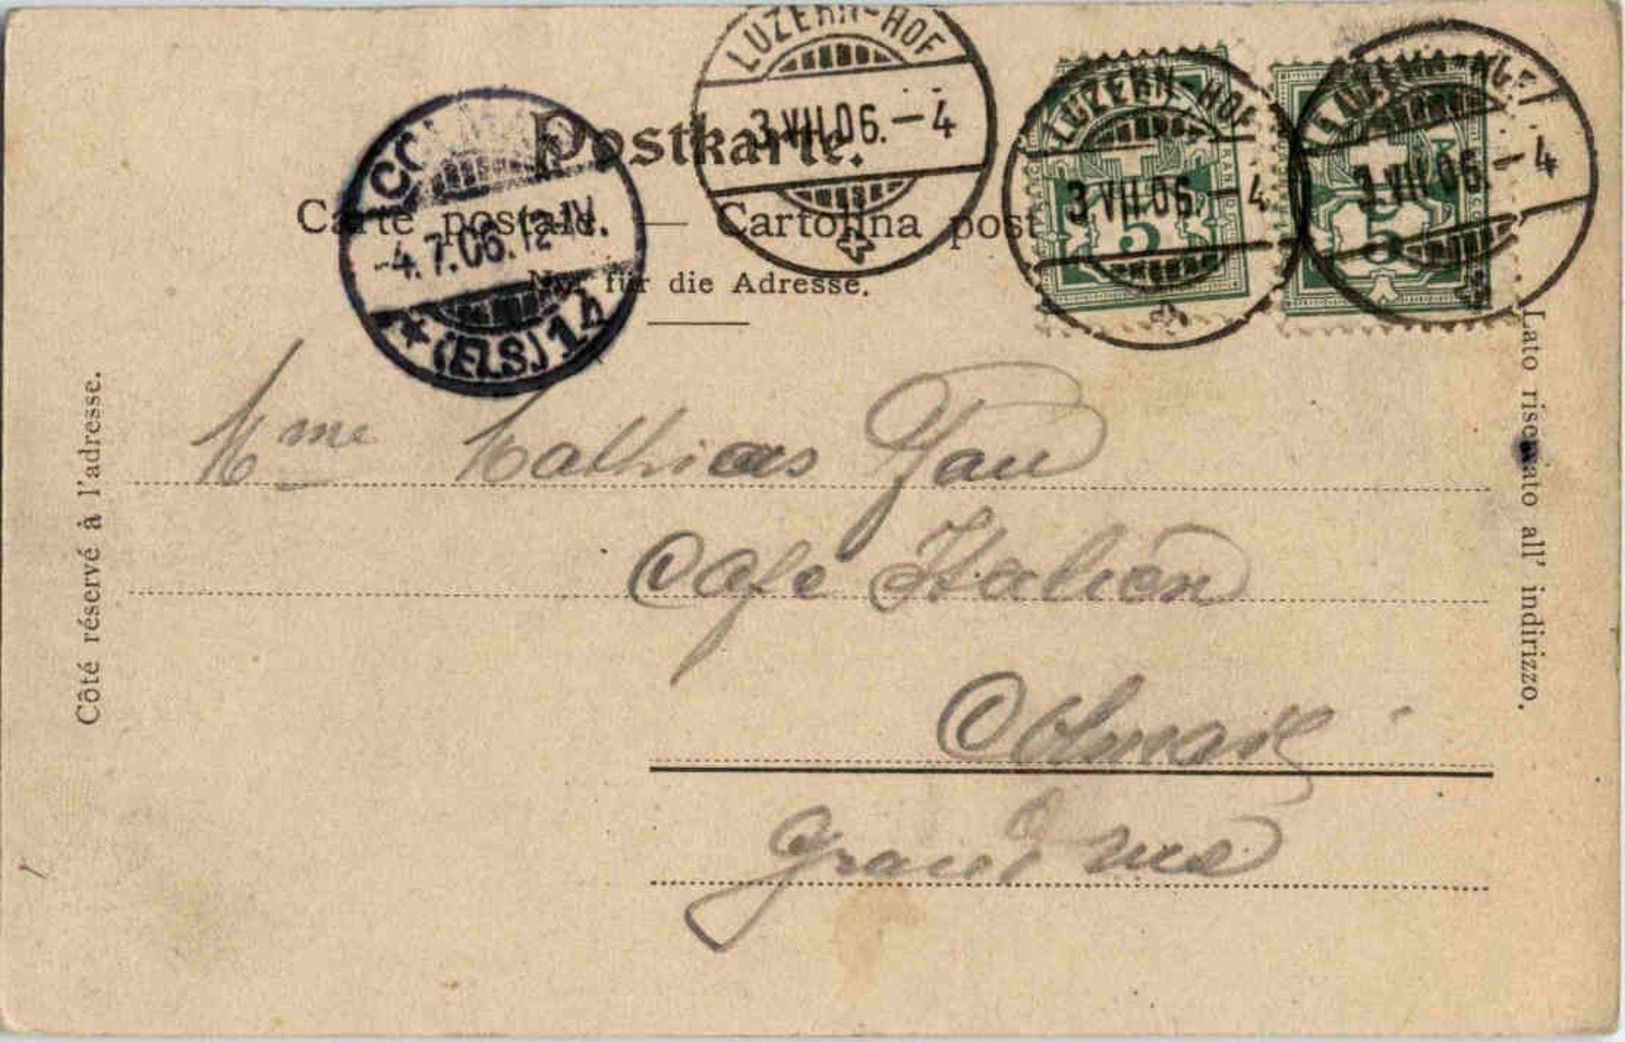 LUZERN-HOF
3.VII.06.-4
LUZERN-HOF
3.VII.06.-4
3.VII.06.-4
5
5
Postkarte.
Carte postale. — Cartolina post
Nur für die Adresse.
-4.7.06.12-1V.
* (ELS) 1
Côté réservé à l'adresse.
Lato riservato all' indirizzo.
Mme Mathias
Café Italien
Colmar
Grand rue